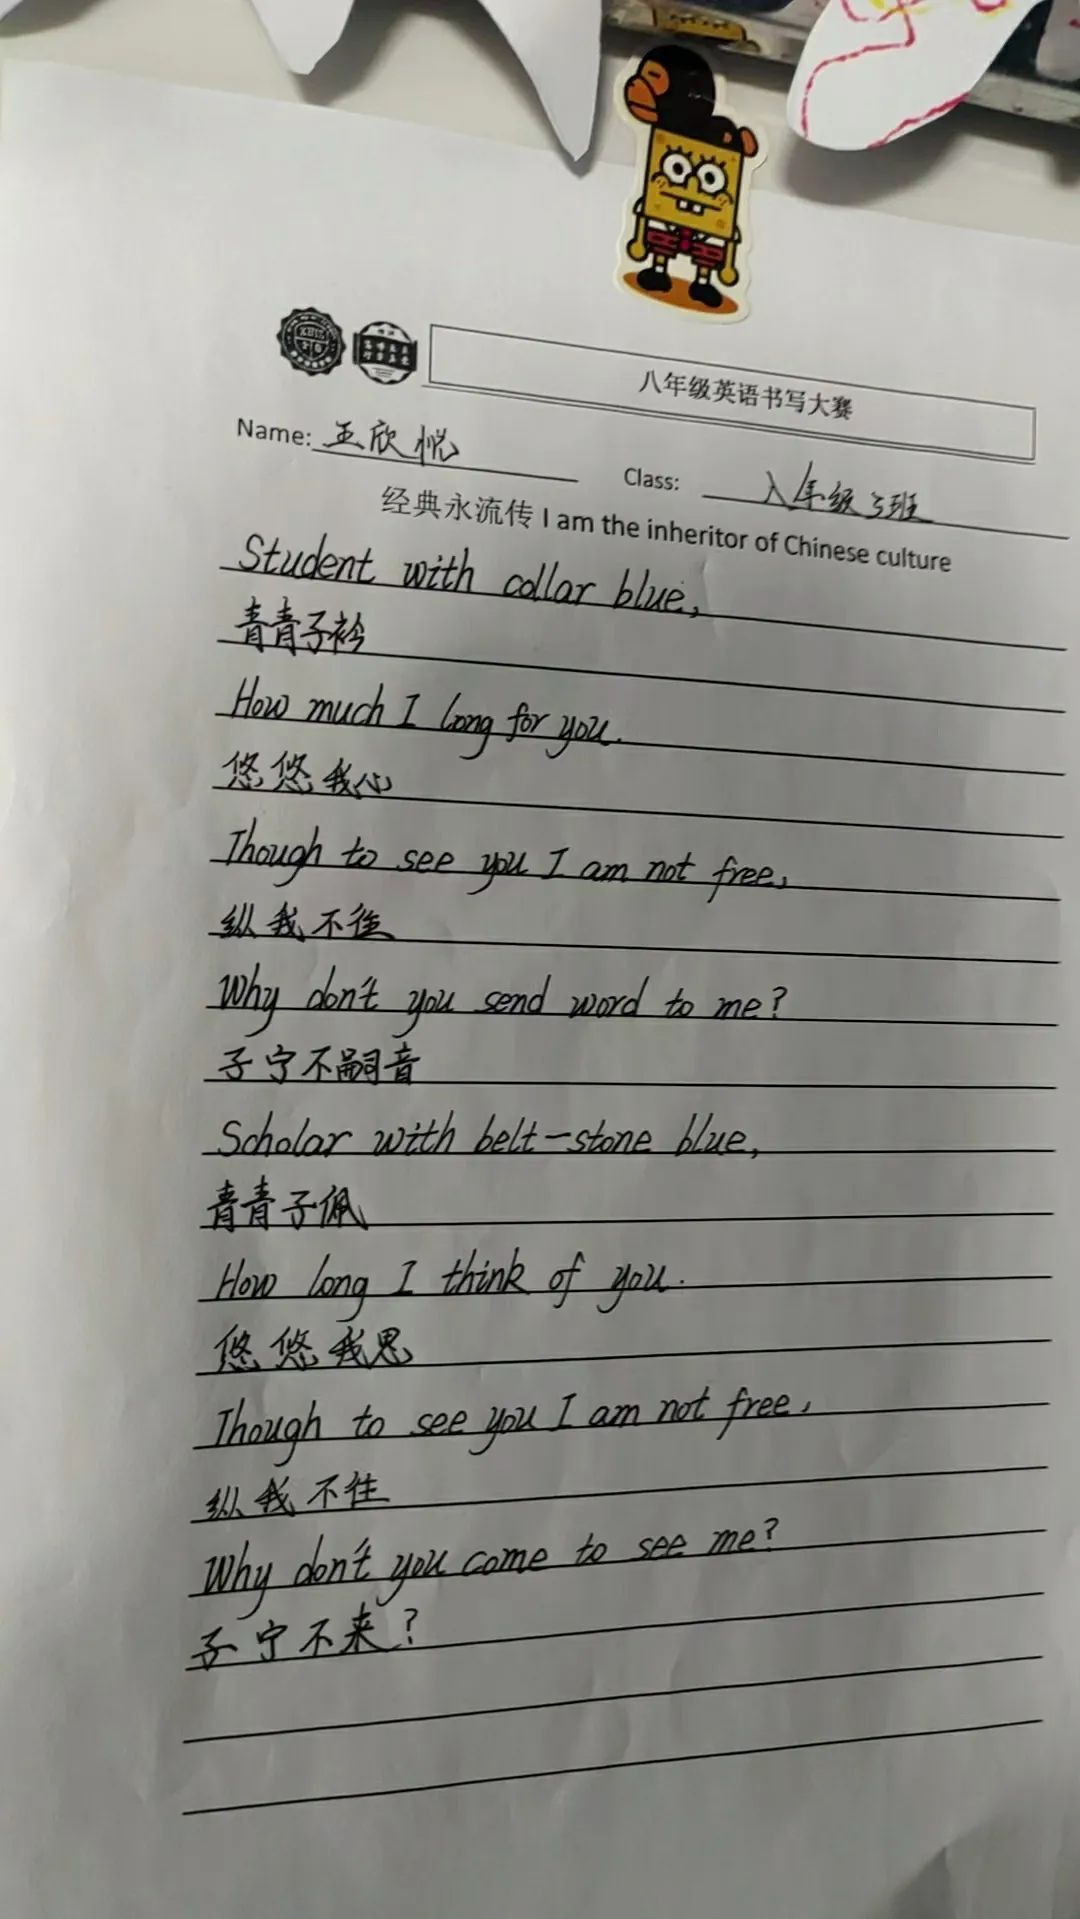 八年级英语书写大赛
Name: 王欣悦 Class: 八年级3班
经典永流传 I am the inheritor of Chinese culture
Student with collar blue,
青青子衿
How much I long for you.
悠悠我心
Though to see you I am not free,
纵我不往
Why don't you send word to me?
子宁不嗣音
Scholar with belt-stone blue,
青青子佩
How long I think of you.
悠悠我思
Though to see you I am not free,
纵我不往
Why don't you come to see me?
子宁不来?